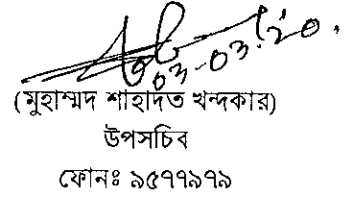 03-03-20.
(মুহাম্মদ শাহাদত খন্দকার)
উপসচিব
ফোনঃ ৯৫৭৭৯৭৯